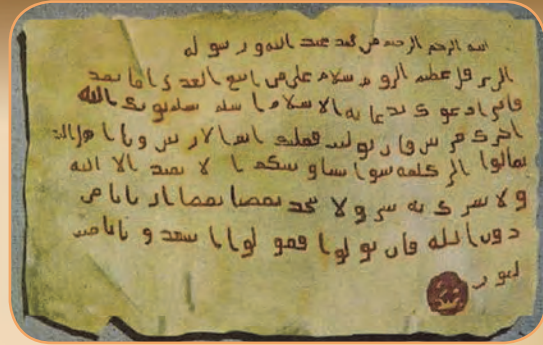 الله الرحمن الرحيم من محمد عبد الله و رسوله
الى هرقل عظيم الروم سلام على من اتبع الهدى اما بعد
فانى ادعوك بدعاية الاسلام اسلم تسلم يوتك الله
اجرك مرتين فان توليت فعليك اثم الاريسين ويا اهل
تعالوا الى كلمة سوا بيننا وبينكم ا لا نعبد الا الله
ولا نشرك به ولا يتخذ بعضنا بعضا اربابا من
دون الله فان تولوا فقولوا